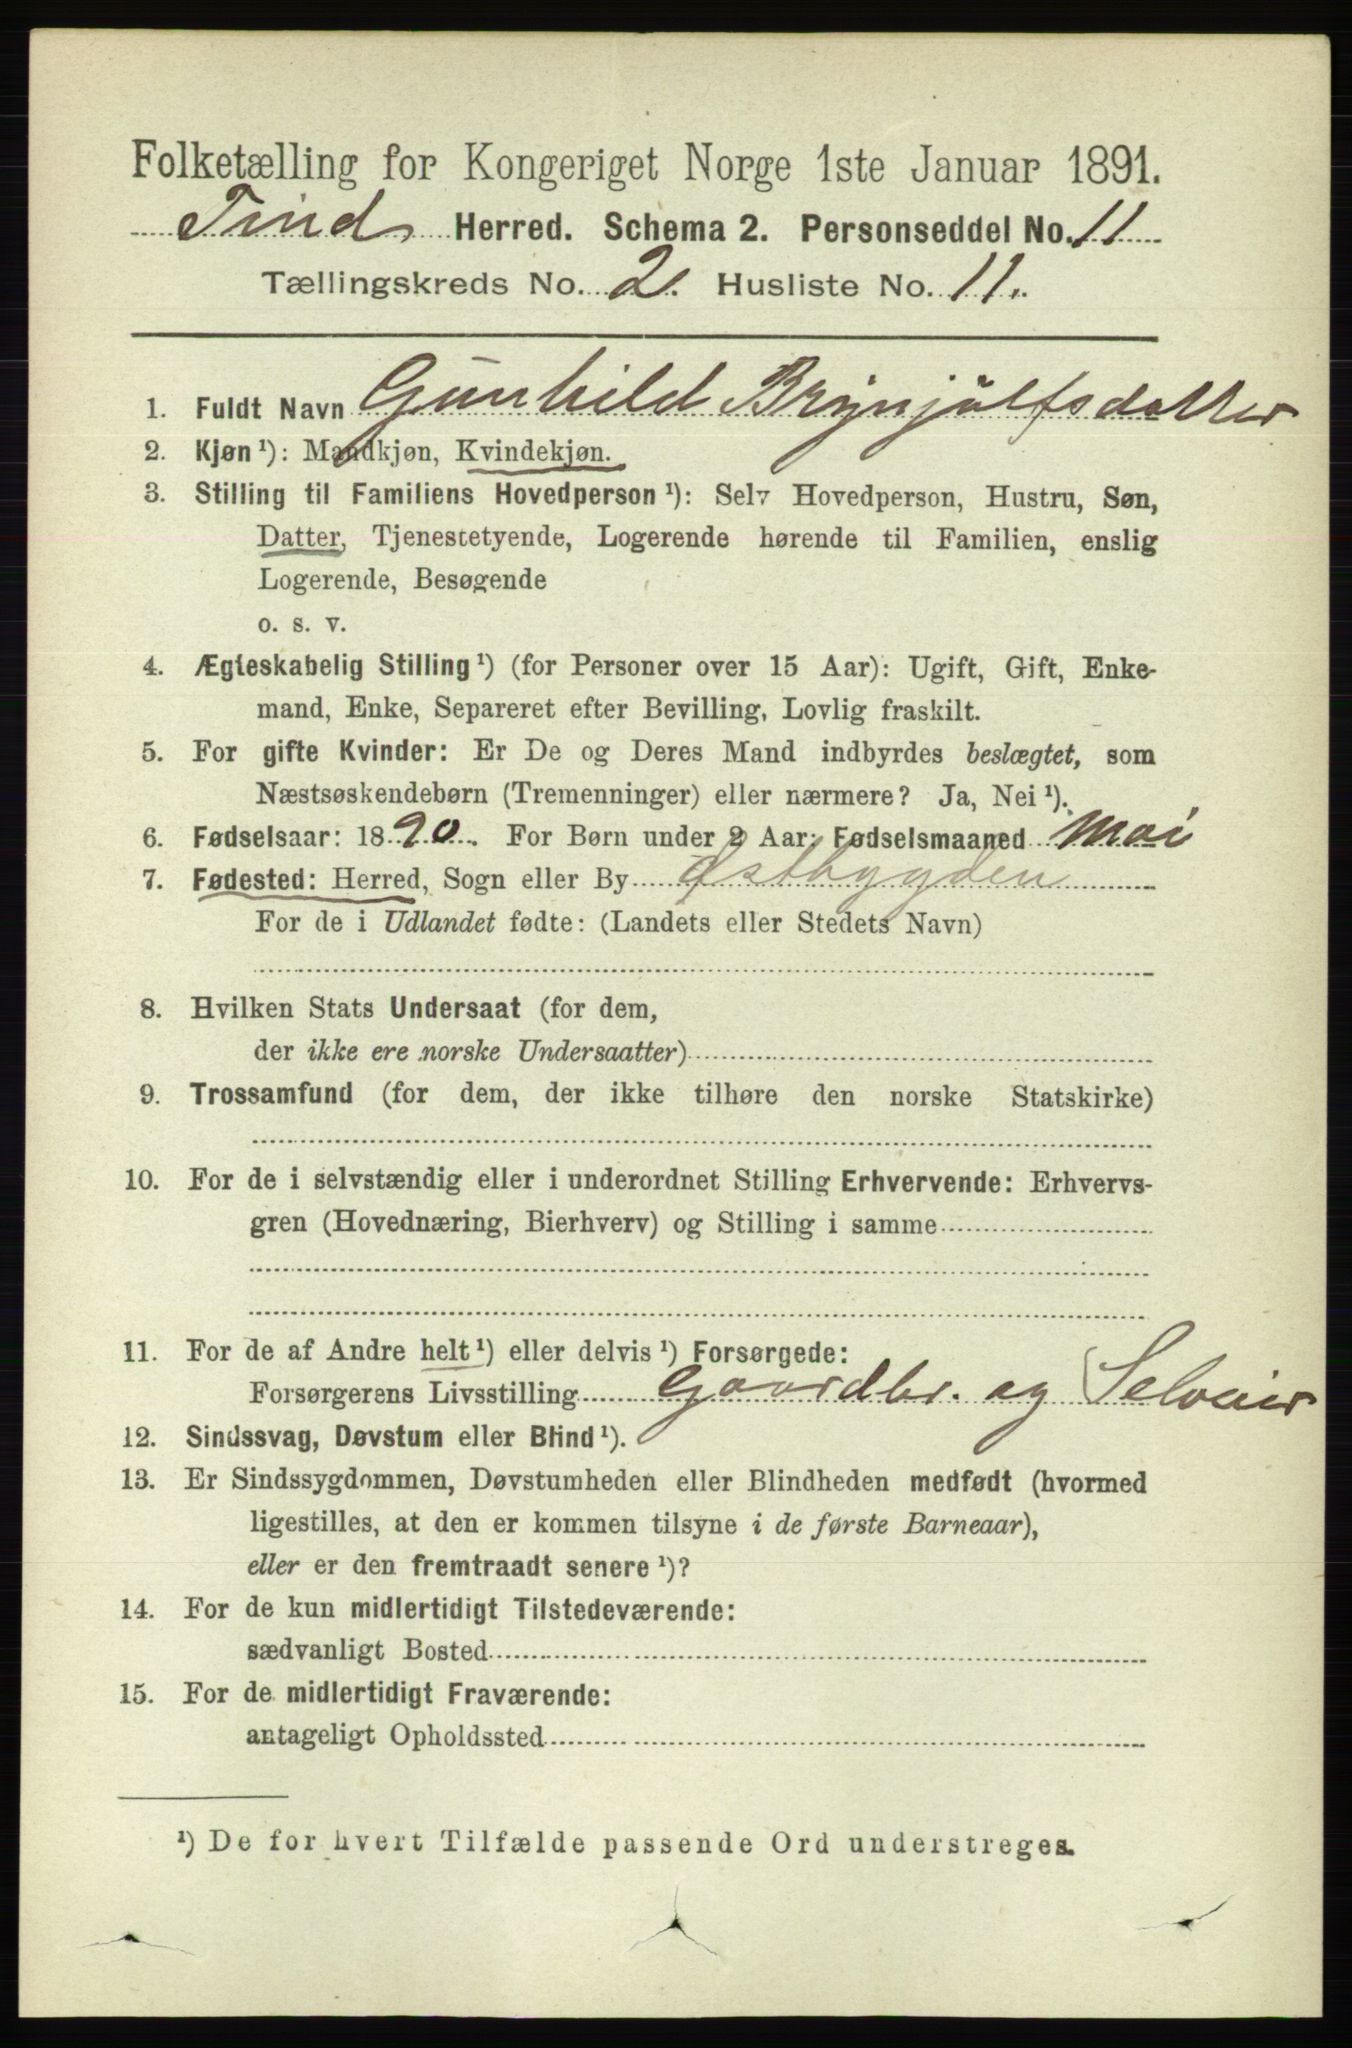 Folketælling for Kongeriget Norge 1ste Januar 1891.
Tind Herred. Schema 2. Personseddel No. 11
Tællingskreds No. 2. Husliste No. 11.
1. Fuldt Navn Gunhild Brynjulfsdatter
2. Kjøn¹): Mandkjøn, Kvindekjøn.
3. Stilling til Familiens Hovedperson¹): Selv Hovedperson, Hustru, Søn,
Datter, Tjenestetyende, Logerende hørende til Familien, enslig
Logerende, Besøgende
o. s. v.
4. Ægteskabelig Stilling¹) (for Personer over 15 Aar): Ugift, Gift, Enke-
mand, Enke, Separeret efter Bevilling, Lovlig fraskilt.
5. For gifte Kvinder: Er De og Deres Mand indbyrdes beslægtet, som
Næstsøskendebørn (Tremenninger) eller nærmere? Ja, Nei¹).
6. Fødselsaar: 1890. For Børn under 2 Aar: Fødselsmaaned Mai
7. Fødested: Herred, Sogn eller By Østbygden
For de i Udlandet fødte: (Landets eller Stedets Navn)
8. Hvilken Stats Undersaat (for dem,
der ikke ere norske Undersaatter)
9. Trossamfund (for dem, der ikke tilhøre den norske Statskirke)
10. For de i selvstændig eller i underordnet Stilling Erhvervende: Erhvervs-
gren (Hovednæring, Bierhverv) og Stilling i samme
11. For de af Andre helt¹) eller delvis¹) Forsørgede:
Forsørgerens Livsstilling Gaardbr. og Selveier
12. Sindssvag, Døvstum eller Blind¹).
13. Er Sindssygdommen, Døvstumheden eller Blindheden medfødt (hvormed
ligestilles, at den er kommen tilsyne i de første Barneaar),
eller er den fremtraadt senere¹)?
14. For de kun midlertidigt Tilstedeværende:
sædvanligt Bosted
15. For de midlertidigt Fraværende:
antageligt Opholdssted
¹) De for hvert Tilfælde passende Ord understreges.